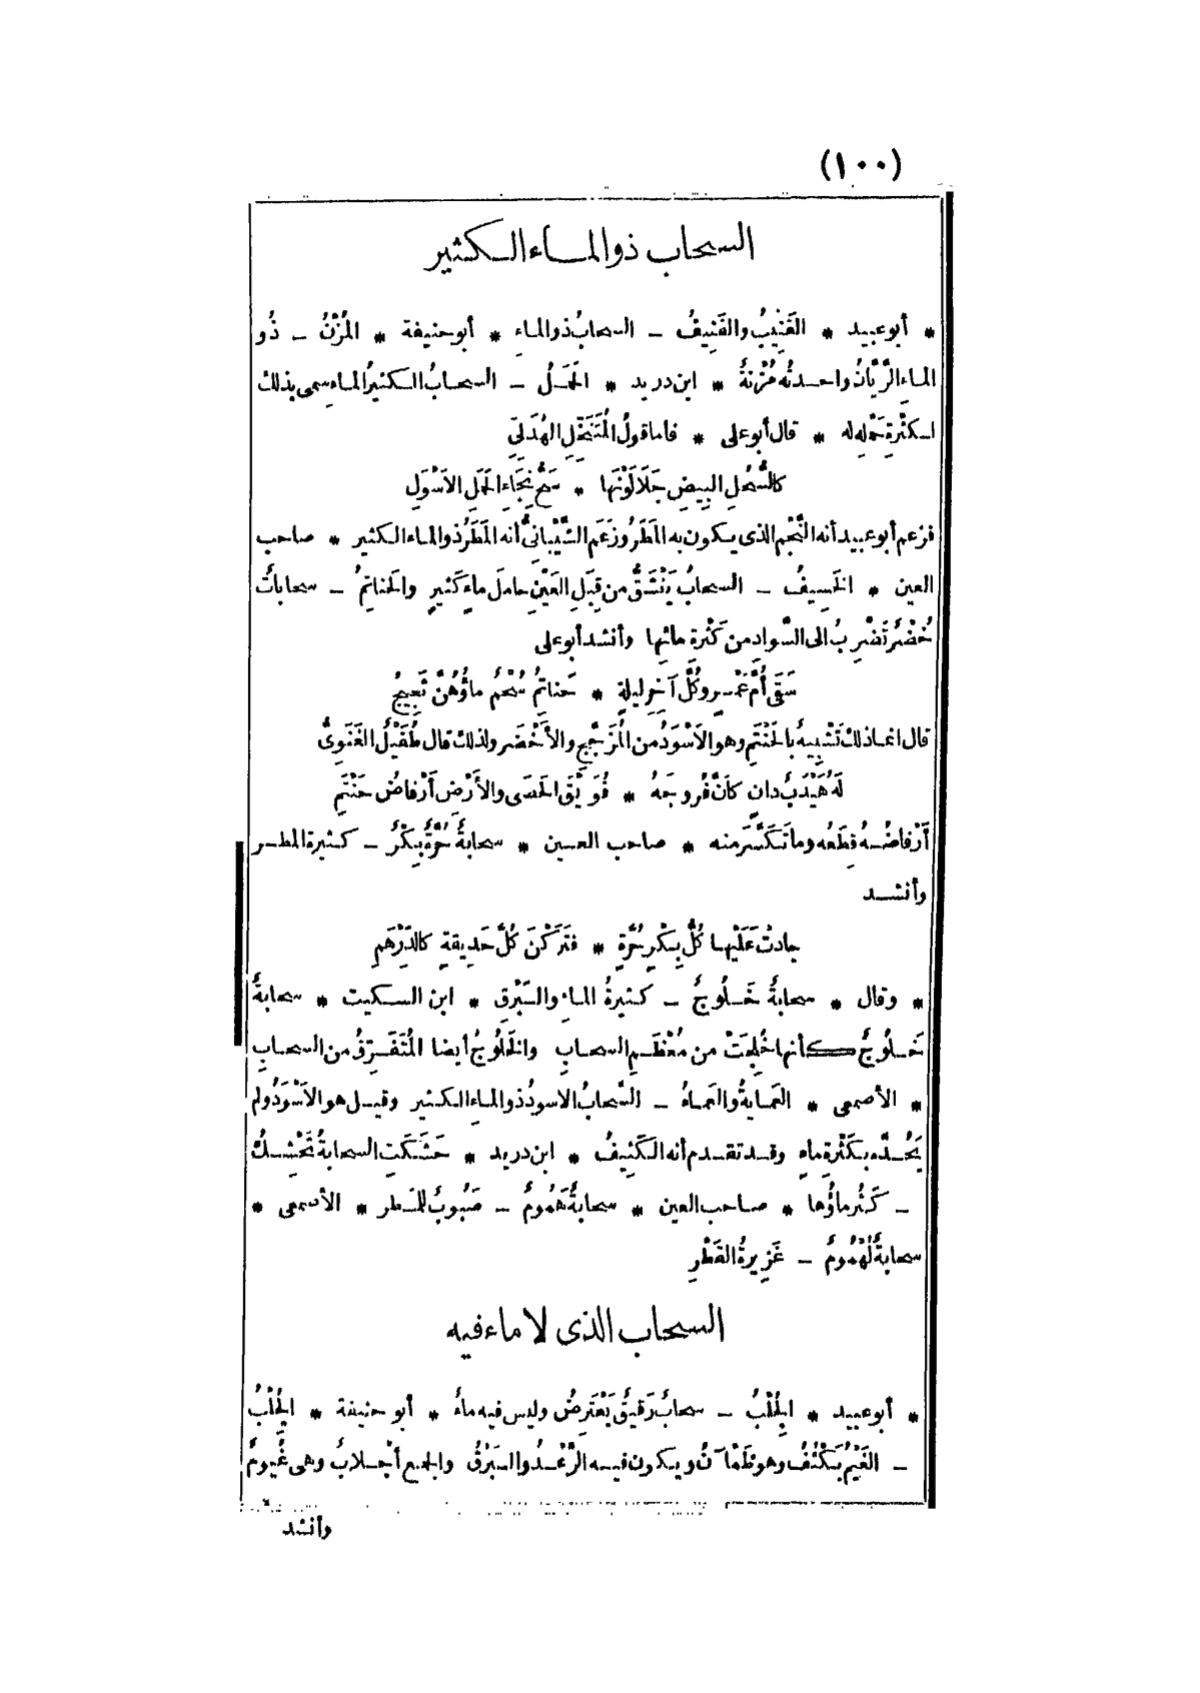 (١٠٠)
السحاب ذو الماء الكثير
* أبو عبيد * القَنِيبُ والقَنِيفُ - السحابُ ذو الماءِ * أبو حنيفة * المُزْنُ - ذُو
الماءِ الرَّيَّانُ واحدتُه مُزْنةٌ * ابن دريد * الحَمَلُ - السحابُ الكثيرُ الماءِ سمى بذلك
لكَثْرةِ حَمْلِه له * قال أبو على * فاما قولُ المُتَنَخِّلِ الهُذَلِىِّ
كالسُّحُلِ البِيضِ جَلَا لَوْنَها * سَحُّ نِجَاءِ الحَمَلِ الاَسْوَلِ
فزعم أبو عبيد أنه النَّجْم الذى يكون به المَطَر وزَعَم الشَّيْبانىُّ أنه المَطَرُ ذو الماء الكثير * صاحب
العين * الخَسِيفُ - السحابُ يَنْشَقُّ من قِبَلِ العَيْنِ حاملَ ماءٍ كَثيرٍ والحَناتِمُ - سحاباتٌ
خُضْرٌ تَضْرِبُ الى السَّوادِ من كَثْرة مائِها وأنشد أبو على
سَقَى أُمَّ عَمْرٍو كُلَّ آخِرِ ليلةٍ * حَناتِمُ سُحْمٌ ماؤُهُنَّ ثَجِيجُ
قال انما ذلك تَشْبِيهٌ بالحَنْتَمِ وهو الاَسْوَدُ من المُزَجَّجِ والأخْضَر ولذلك قال طُفَيْلُ الغَنَوِىُّ
لَهُ هَيْدَبٌ دانٍ كاَنَّ فُروجَهُ * فُوَيْقَ الحَصَى والأَرْضِ أَرْفاضُ حَنْتَمِ
أَرْفاضُه قِطَعُه وما تَكَسَّرَ منه * صاحب العين * سحابةٌ حُرَّةٌ بِكْرٌ - كثيرة المطر
وأنشد
جادتْ عَلَيْها كُلُّ بِكْرٍ حُرَّةٍ * فتَرَكْنَ كُلَّ حَدِيقةٍ كالدِّرْهَمِ
* وقال * سحابةٌ خَلُوجٌ - كثيرةُ الماءِ والبَرْقِ * ابن السكيت * سحابةٌ
خَلُوجٌ كأنها خُلِجَتْ من مُعْظَمِ السحابِ والخَلُوجُ أيضا المُتَفَرِّقُ من السحابِ
* الأصمعى * العَمايةُ والعَماءُ - السَّحابُ الاسودُ ذو الماء الكثير وقيل هو الاَسْوَدُ ولم
يَحُدَّه بكَثْرةِ ماءٍ وقد تقدم أنه الكَثِيفُ * ابن دريد * حَشَكَتِ السحابةُ تَحْشِكُ
- كَثُر ماؤُها * صاحب العين * سحابةٌ هَمُومٌ - صَبُوبٌ للمَطر * الأصمعى *
سحابةٌ لُهْمُومٌ - غَزِيرةُ القَطْرِ
السحاب الذى لا ماء فيه
* أبو عبيد * الجُلْبُ - سحابٌ رَقيقٌ يَعْتَرِضُ وليس فيه ماءٌ * أبو حنيفة * الجُلْبُ
- الغَيْمُ يَكْثُفُ وهو ظَمْآنُ ويكون فيه الرَّعْدُ والبَرْقُ والجمع أجْلابٌ وهى غُيومٌ
وأنشد